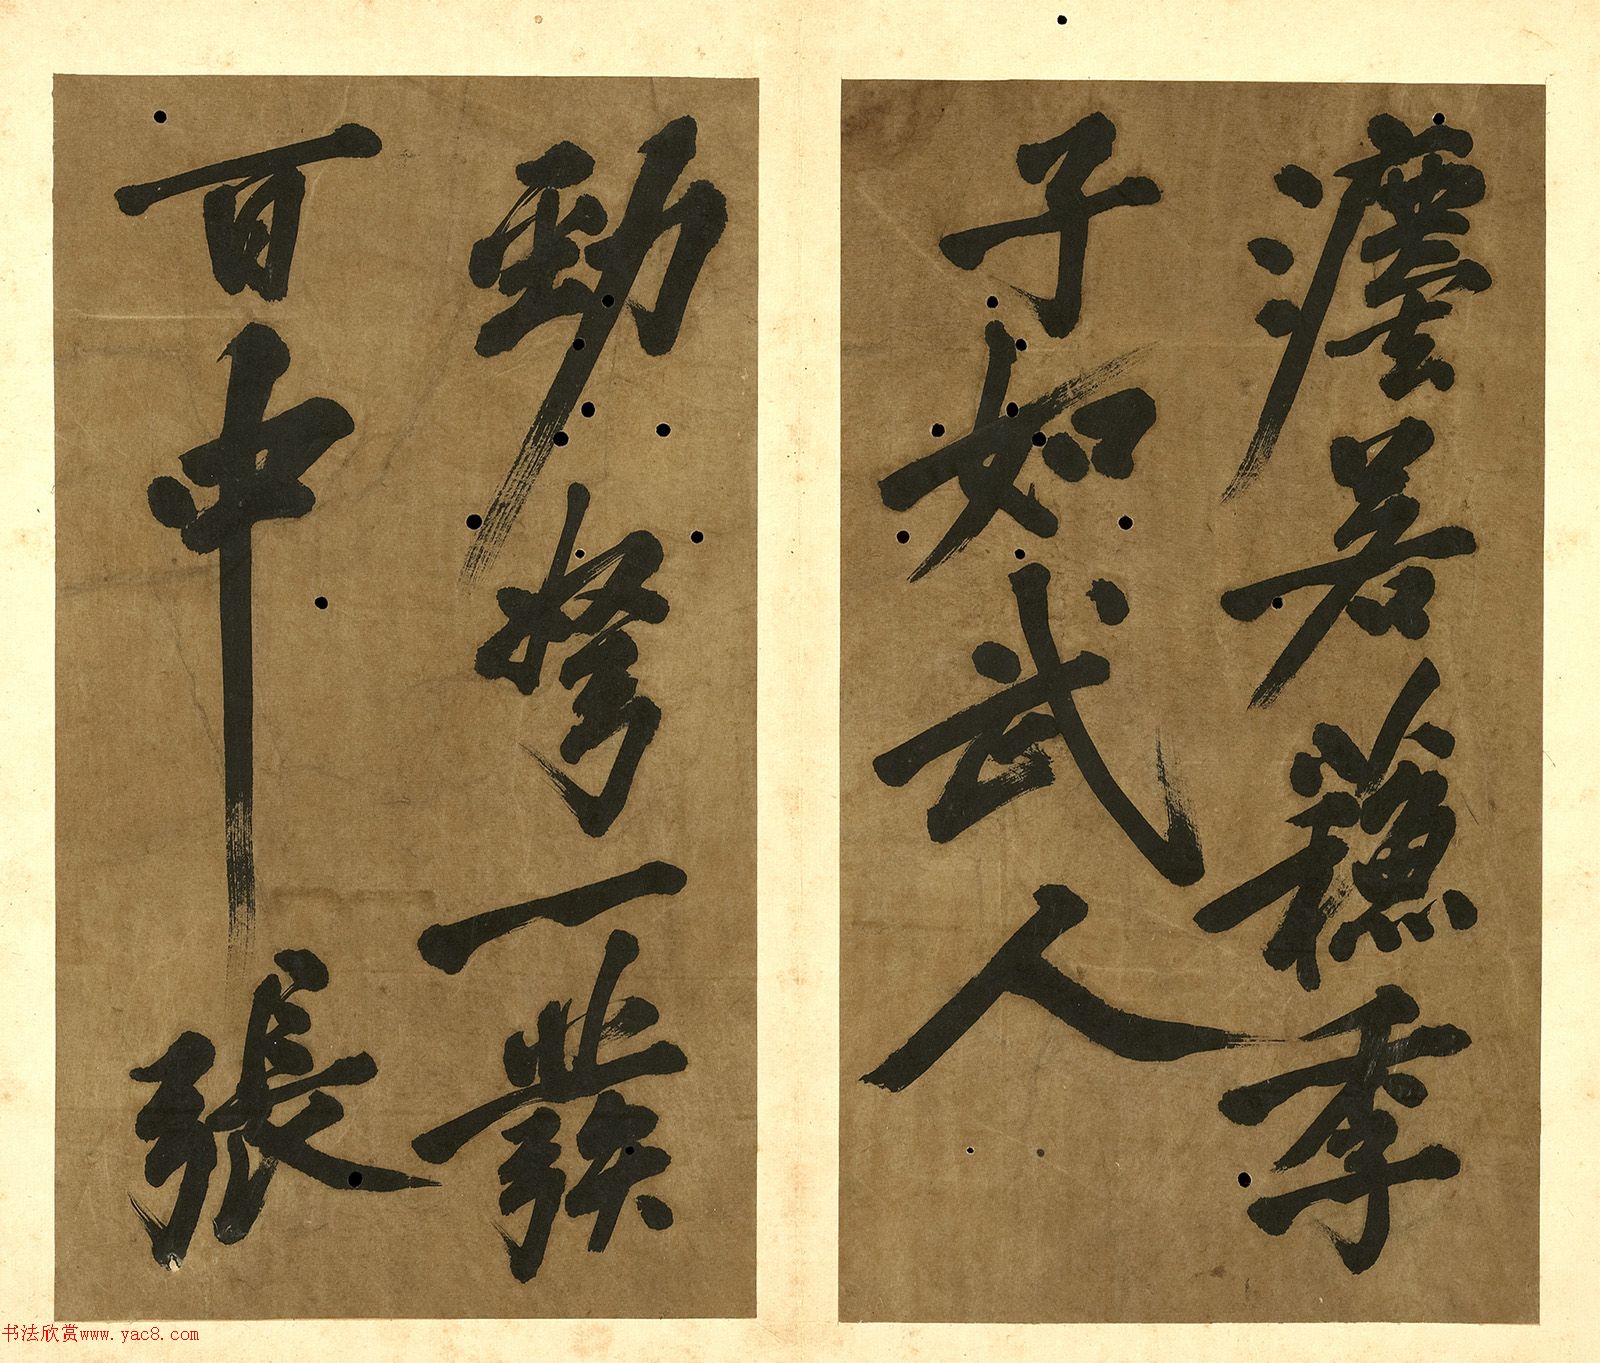 瀍若蘓季
子如武人
勁弩一發
百中張
书法欣赏www.yac8.com